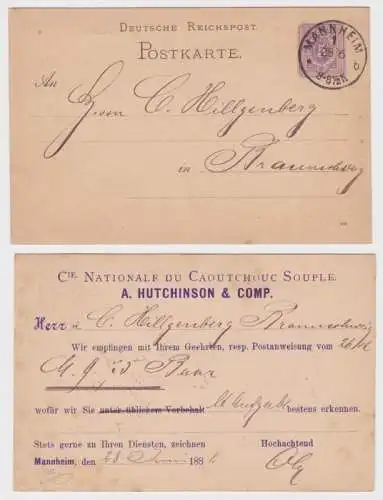 DEUTSCHE REICHSPOST.
POSTKARTE.
MANNHEIM
1
28 6
8-9½N
An
Herrn C. Hillgenberg
in Braunschweig
CIE. NATIONALE DU CAOUTCHOUC SOUPLE.
A. HUTCHINSON & COMP.
Herr C. Hillgenberg Braunschweig
Wir empfingen mit Ihrem Geehrten, resp. Postanweisung vom 26/6
M. 9. 25
wofür wir Sie unter üblichem Vorbehalt bestens erkennen.
Stets gerne zu Ihren Diensten, zeichnen Hochachtend
Mannheim, den 28 Juni 188